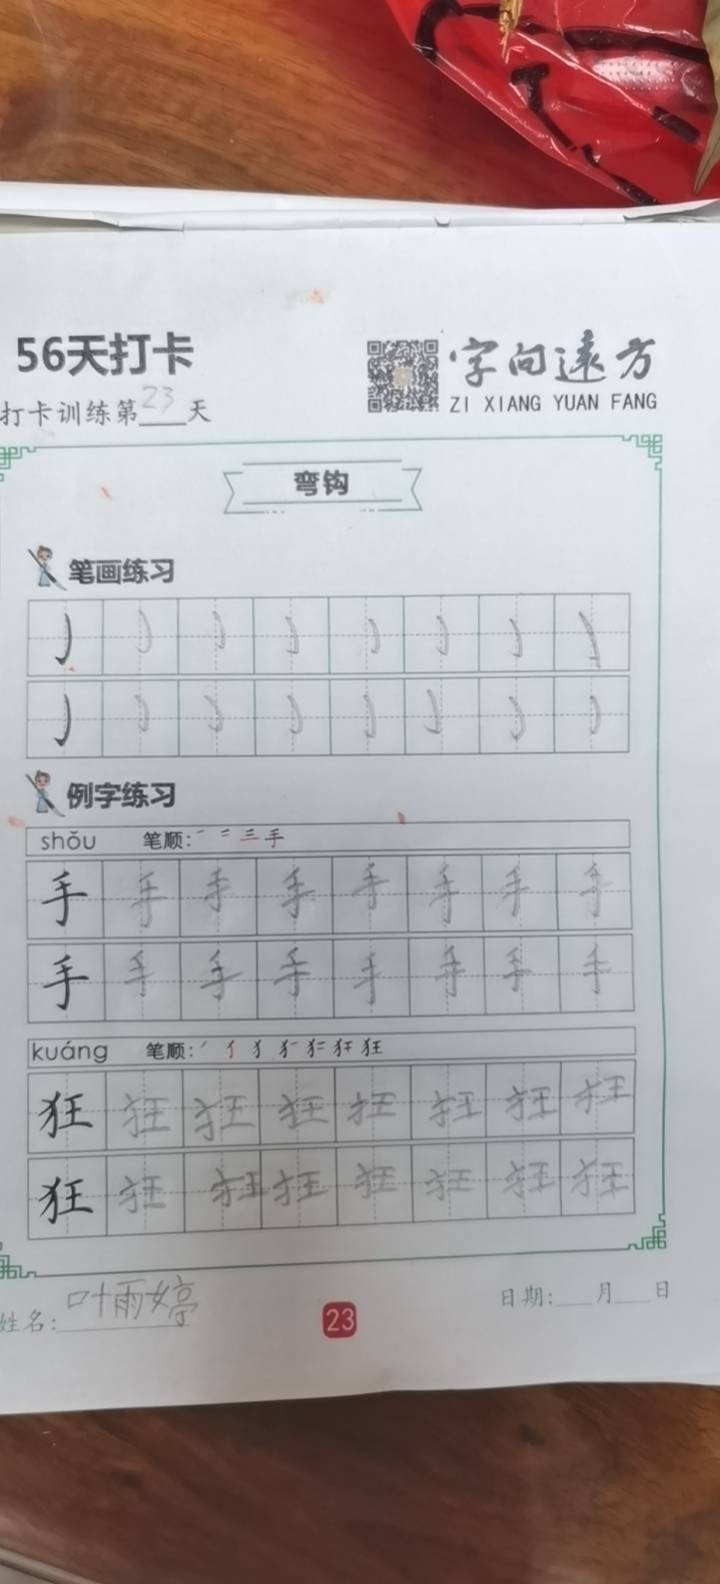 56天打卡
字向远方
ZI XIANG YUAN FANG
打卡训练第23天
弯钩
笔画练习
例字练习
shǒu 笔顺: 一 二 三 手
手 手 手 手 手 手 手 手
手 手 手 手 手 手 手 手
kuáng 笔顺: 狂
狂 狂 狂 狂 狂 狂 狂 狂
狂 狂 狂 狂 狂 狂 狂 狂
姓名: 叶雨婷
23
日期:___月___日